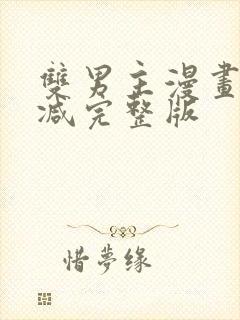 雙男主漫畫
减完整版
惜夢缘